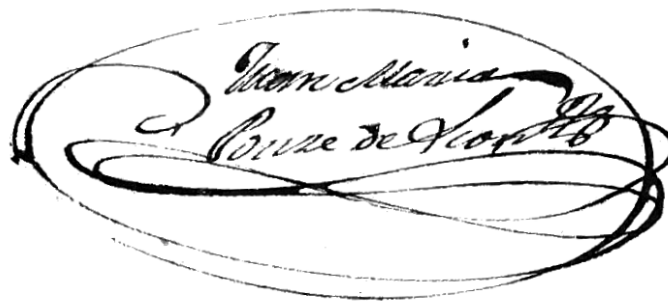 Juan Maria
Ponze de Leon